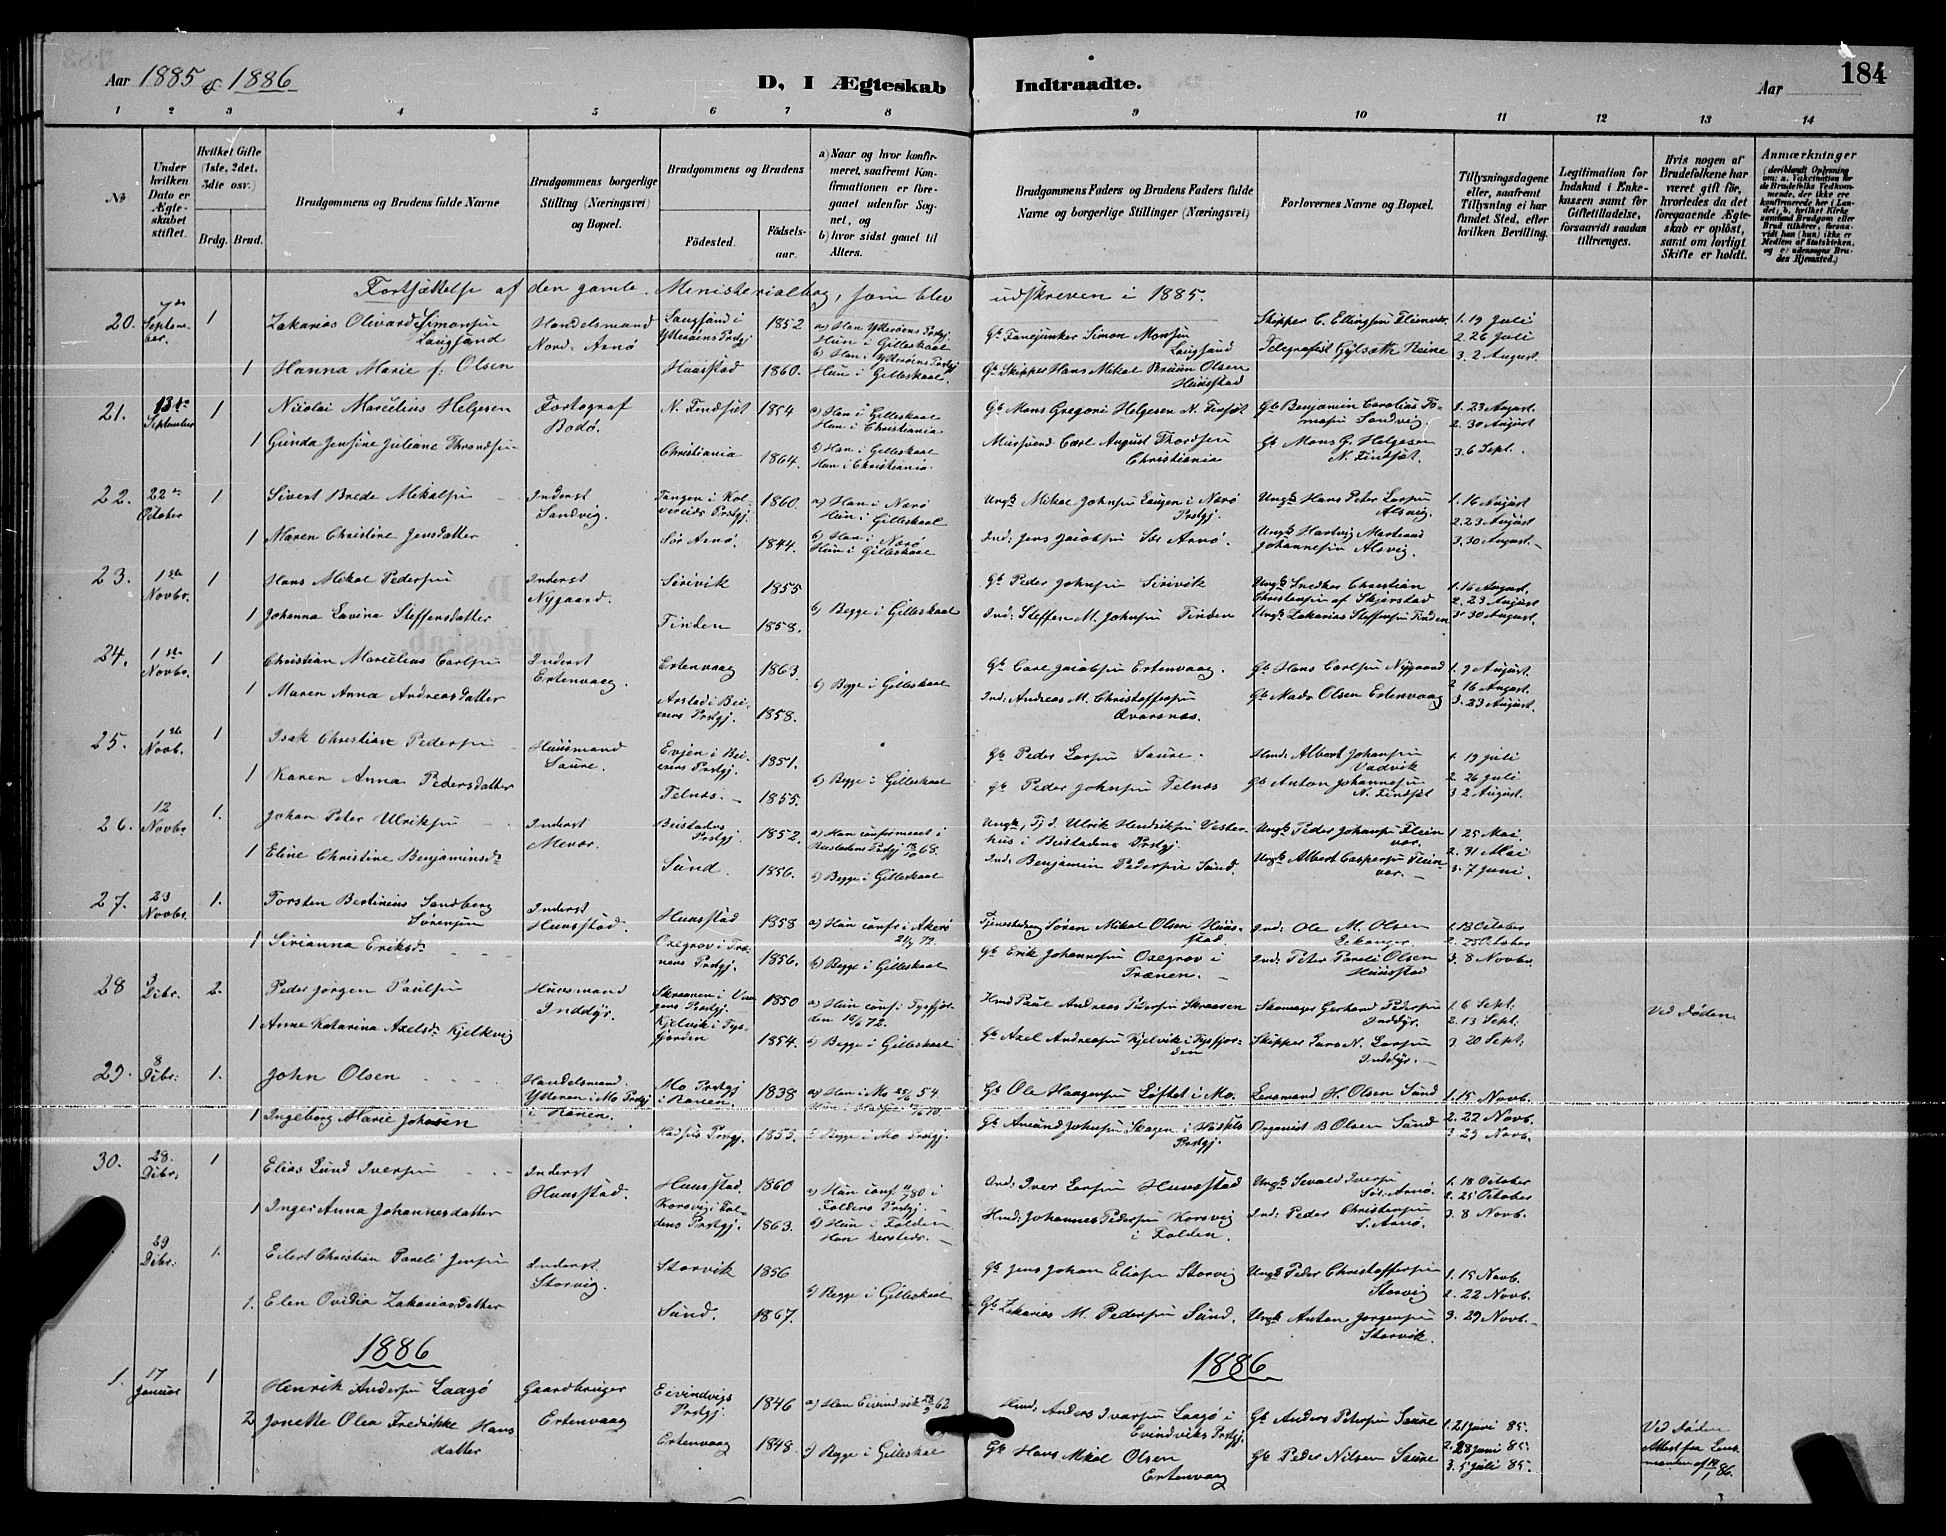 Aar 1885 & 1886
D, I Ægteskab Indtraadte.
Aar
184
1 2 3 4 5 6 7 8 9 10 11 12 13 14
№
Under hvilken Dato er Ægteskabet stiftet.
Hvilket Gifte (1ste, 2det, 3die osv.)
Brdg. Brud.
Brudgommens og Brudens fulde Navne
Brudgommens borgerlige Stilling (Næringsvei) og Bopæl.
Brudgommens og Brudens
Fødested.
Fødselsaar.
a) Naar og hvor konfirmeret, saafremt Konfirmationen er foregaaet udenfor Sognet, og
b) hvor sidst gaaet til Alters.
Brudgommens Faders og Brudens Faders fulde Navne og borgerlige Stillinger (Næringsvei)
Forlovernes Navne og Bopæl.
Tillysningsdagene eller, saafremt Tillysning ei har fundet Sted, efter hvilken Bevilling.
Legitimation for Indskud i Enkekassen samt for Giftetilladelse, forsaavidt saadan tiltrænges.
Hvis nogen af Brudefolkene har været gift før, hvorledes da det foregaaende Ægteskab er opløst, samt om lovligt Skifte er holdt.
Anmærkninger
Fortsættelse af den gamle Ministerialbog, som blev udskreven i 1885.
20. 7de September 1 Zakarias Olivard Simonsen Laugsand Handelsmand Nord-Arnø Laugsand i Ytterøens Prstgj. 1852 a) Han i Ytterøens Prstgj. Hun i Gilleskaal b) Han i Ytterøens Prstgj. Hun i Gilleskaal. Gb Fanejunker Simon Monsen Laugsand Skipper C. Ellingsen Fleinvær 1. 19 Juli
1 Hanna Marie f: Olsen Huustad 1860. Gb Skipper Hans Mikal Bruun Olsen Huustad Telegrafist Gylseth Reine 2. 26 Juli 3. 2 August.
21. 13de September 1 Nicolai Marcelius Helgesen Fortograf Bodø. N. Findsæt 1854 a) Han i Gilleskaal Hun i Christiania Gb Mons Gregori Helgesen N. Finsæt Gb Benjamin Carolius Tomasen Sandvig 1. 23 August. 2. 30 August
1 Gunda Jensine Juliane Throndsen Christiania 1864. b) Han i Gilleskaal Hun i Christiania. Muursvend Carl August Thordsen Christiania Gb Mons G. Helgesen N. Findsæt. 3. 6 Sept.
22. 22de October 1 Sivert Brede Mikalsen Inderst Sandvig. Tangen i Kolvereids Prstgj. 1860. a) Han i Nærø Hun i Gilleskaal Ungk Mikal Johnsen Laugen i Nærø Prstgj. Ungk Hans Peter Larsen Alsvig. 1. 16 August 2. 23 August
1 Maren Christine Jensdatter Sør Arnø. 1844. b) Han i Nærø Hun i Gilleskaal Ind: Jens Jacobsen Sør Arnø. Ungk Hartvig Martinus Johannesen Alsvig. 3. 30 August.
23. 1ste Novbr. 1 Hans Mikal Pedersen Inderst Nygaard. Sørivik 1855 Gb Peder Johnsen Sirivik Ungk Snedker Christian Christensen af Skjerstad 1. 16 August. 2. 23 August
1 Johanna Lavina Steffensdatter Finden 1858. b) Begge i Gilleskaal Ind: Steffen M. Johnsen Finden Ungk Zakarias Steffensen Finden 3. 30 August.
24. 1ste Novbr. 1 Christian Marcelius Carlsen Inderst Ertenvaag. Ertenvaag 1863. Gb Carl Jacobsen Ertenvaag. Gb Hans Carlsen Nygaard 1. 9 August.
1 Maren Anna Andreasdatter Arstad i Beierens Prstgj. 1858. b) Begge i Gilleskaal Ind: Andreas M. Christoffersen Qvarsnæs. Gb Mads Olsen Ertenvaag 2. 16 August. 3. 23 August.
25. 1ste Novb. 1 Isak Christian Pedersen Huusmand Saure. Evjen i Beierens Prstgj. 1851. Gb Peder Larsen Saure. Hmd: Albert Johansen Vadvik 1. 19 Juli
1 Karen Anna Pedersdatter Telnæs. 1855. b) Begge i Gilleskaal Gb Peder Johnsen Telnæs Gb Anton Johannesen N. Findsæt 2. 26 Juli 3. 2 August.
26. 12 Novbr. 1. Johan Peter Ulriksen Inderst Mevær. Beistadens Prstgj. 1852. a) Han confirmeret i Beistadens Prstgj. 68. Ungk, Tj d. Ulrik Hendriksen Vesterhus i Beistadens Prstgj. Ungk Peder Johansen Fleinvær. 1. 25 Mai 2. 31 Mai
1 Eline Christine Benjaminsdr Sund. 1856. b) Begge i Gilleskaal Ind: Benjamin Pedersen Sund. Ungk Albert Caspersen Fleinvær. 3. 7 Juni.
27. 23 Novbr. 1. Torsten Bertinius Sandberg Sørensen Inderst Huustad. Huustad 1858 a) Hun confr i Akerø 72. Tjenestedreng Søren Mikal Olsen Huustad. Ind: Ole M. Olsen 1. 18 October 2. 25 October
1 Sirianna Eriksdr Oxegrov i Trænens Prstgj. 1856. b) Begge i Gilleskaal Gb Erik Johannesen Oxegrov i Trænen. Ind: Peter Pareli Olsen Huustad 3. 8 Novbr.
28 3 Dcbr. 2. Peder Jørgen Paulsen Huusmand Inddyr. Skraaven i Vaagens Prstgj. 1850 a) Hun conf. i Tysfjorden 72. Hmd Paul Andreas Pedersen Skraaven Skomager Gerhard Pedersen Inddyr. 1. 6 Sept. 2. 13 Sept. Ved Døden.
1 Anne Katarina Axelsdr Kjelkvig Kjelvik i Tysfjorden 1854. b) Begge i Gilleskaal Gb Axel Andreasen Kjelvik i Tysfjorden Skipper Lars N. Larsen Inddyr. 3 20 Sept.
29. 8 Dcbr. 1. John Olsen Handelsmand. Ytteren i Mo Prstgj i Ranen. Mo Prstgj i Ranen. 1838 a) Han i Mo 54. Gb Ole Haagensen Løftet i Mo. Lensmand H. Olsen Sund 1. 15 Novb.
1 Ingeborg Marie Johnsen Hadsels Prstgj. 1855. b) Begge i Mo Prstgj. Gb Amund Johnsen Skagen i Hadsels Prstgj. Organist B Olsen Sund 2. 22 Novb. 3. 29 Novb.
30. 28. Dcbr. 1 Elias Lund Iversen Inderst Huustad. Huustad. 1860 a) Hun conf. 80 i Foldens Prstgj. Ind: Iver Larsen Huustad Ungk Sevald Iversen Sør Arnø. 1. 18 October 2. 25 October
1 Inger Anna Johannesdatter Korsvig i Foldens Prstgj. 1863. b) Hun i Folden Han hersteds. Hmd: Johannes Pedersen Korsvig i Folden. Ind: Peder Christensen S. Arnø. 3. 8 Novb.
29 Dcbr. 1. Edert Christian Pareli Jensen Inderst Storvig. Storvik 1856 Gb Jens Johan Eliasen Storvig Ungk Peder Christoffersen Storvig 1. 15 Novb. 2. 22 Novb.
1. Elen Ovidia Zakariasdatter Sund. 1867. b) Begge i Gilleskaal Gb Zakarias M. Pedersen Sund. Ungk Anton Jørgensen Storvik. 3. 29 Novb.
1886 1886
1. 17 Januar 1 Henrik Andersen Laagø Gaardbruger Ertenvaag Eivindvigs Prstgj. 1846 a) Han Eivindvik 62 Hmd: Anders Ivarsen Laagø i Evindviks Prstgj. Gb Anders Petersen Saure 1. 21 Juni 85.
2 Jonette Olea Fredrikke Hansdatter Ertenvaag 1848. b) Begge i Gilleskaal Gb Hans Mikal Olsen Ertenvaag Gb Peder Nilsen Saure 2. 28 Juni 85. 3. 5 Juli 85. Ved Døden Attest fra Lensmanden af 86.